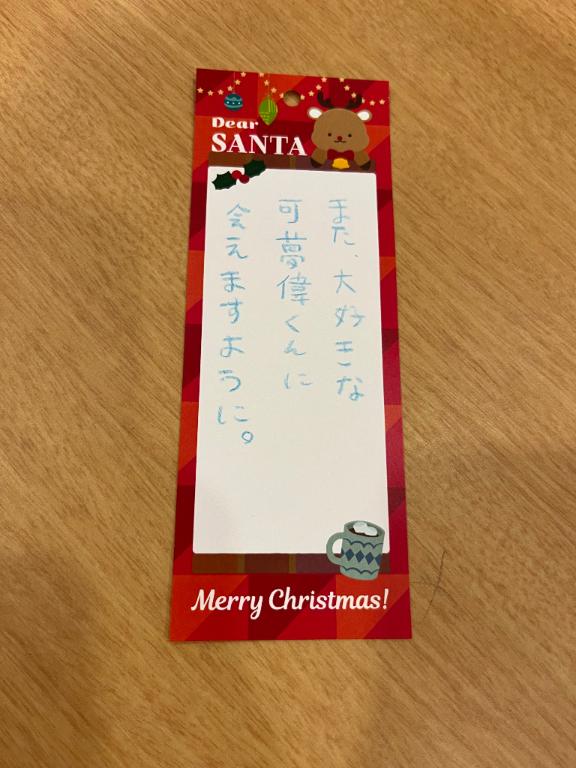 Dear
SANTA
また、大好きな
可夢偉くんに
会えますように。
Merry Christmas!